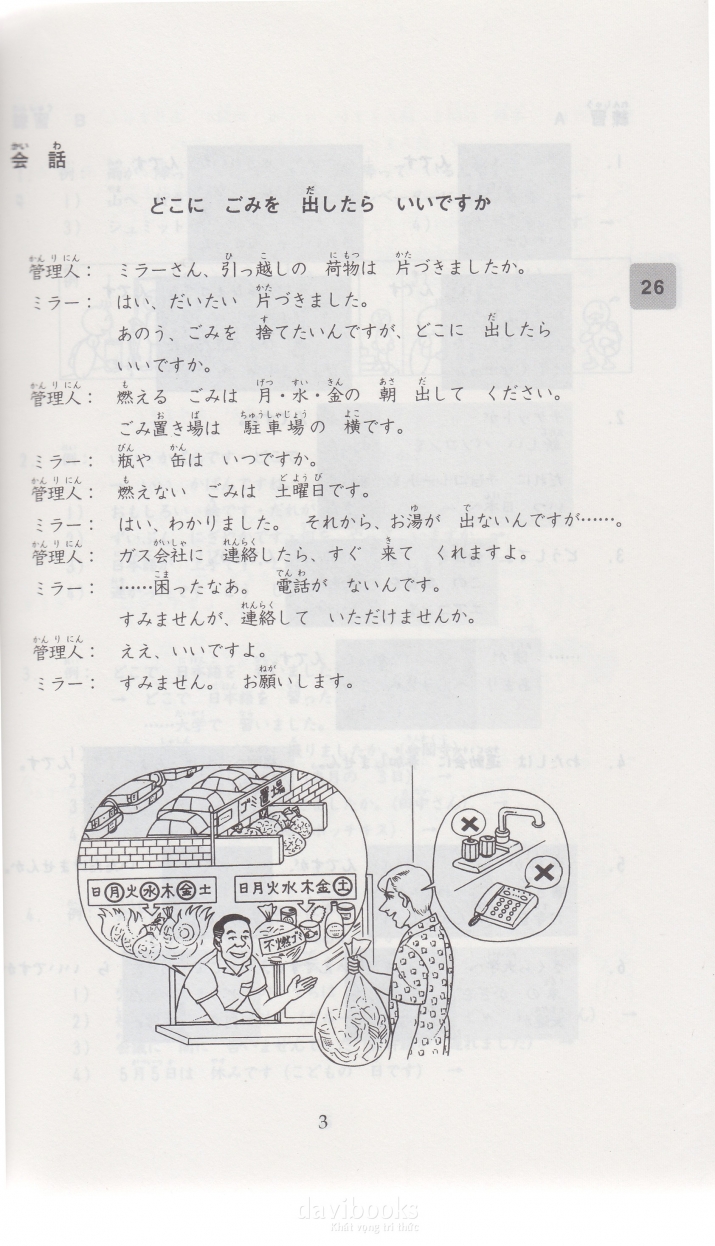 会話
どこに ごみを 出したら いいですか
管理人： ミラーさん、引っ越しの 荷物は 片づきましたか。
ミラー： はい、だいたい 片づきました。
あのう、ごみを 捨てたいんですが、どこに 出したら
いいですか。
26
管理人： 燃える ごみは 月・水・金の 朝 出して ください。
ごみ置き場は 駐車場の 横です。
ミラー： 瓶や 缶は いつですか。
管理人： 燃えない ごみは 土曜日です。
ミラー： はい、わかりました。 それから、お湯が 出ないんですが……。
管理人： ガス会社に 連絡したら、すぐ 来て くれますよ。
ミラー： ……困ったなあ。 電話が ないんです。
すみませんが、連絡して いただけませんか。
管理人： ええ、いいですよ。
ミラー： すみません。 お願いします。
ゴミ置場
日月火水木金土
日月火水木金土
不燃ゴミ
3
davibooks
Khát vọng tri thức